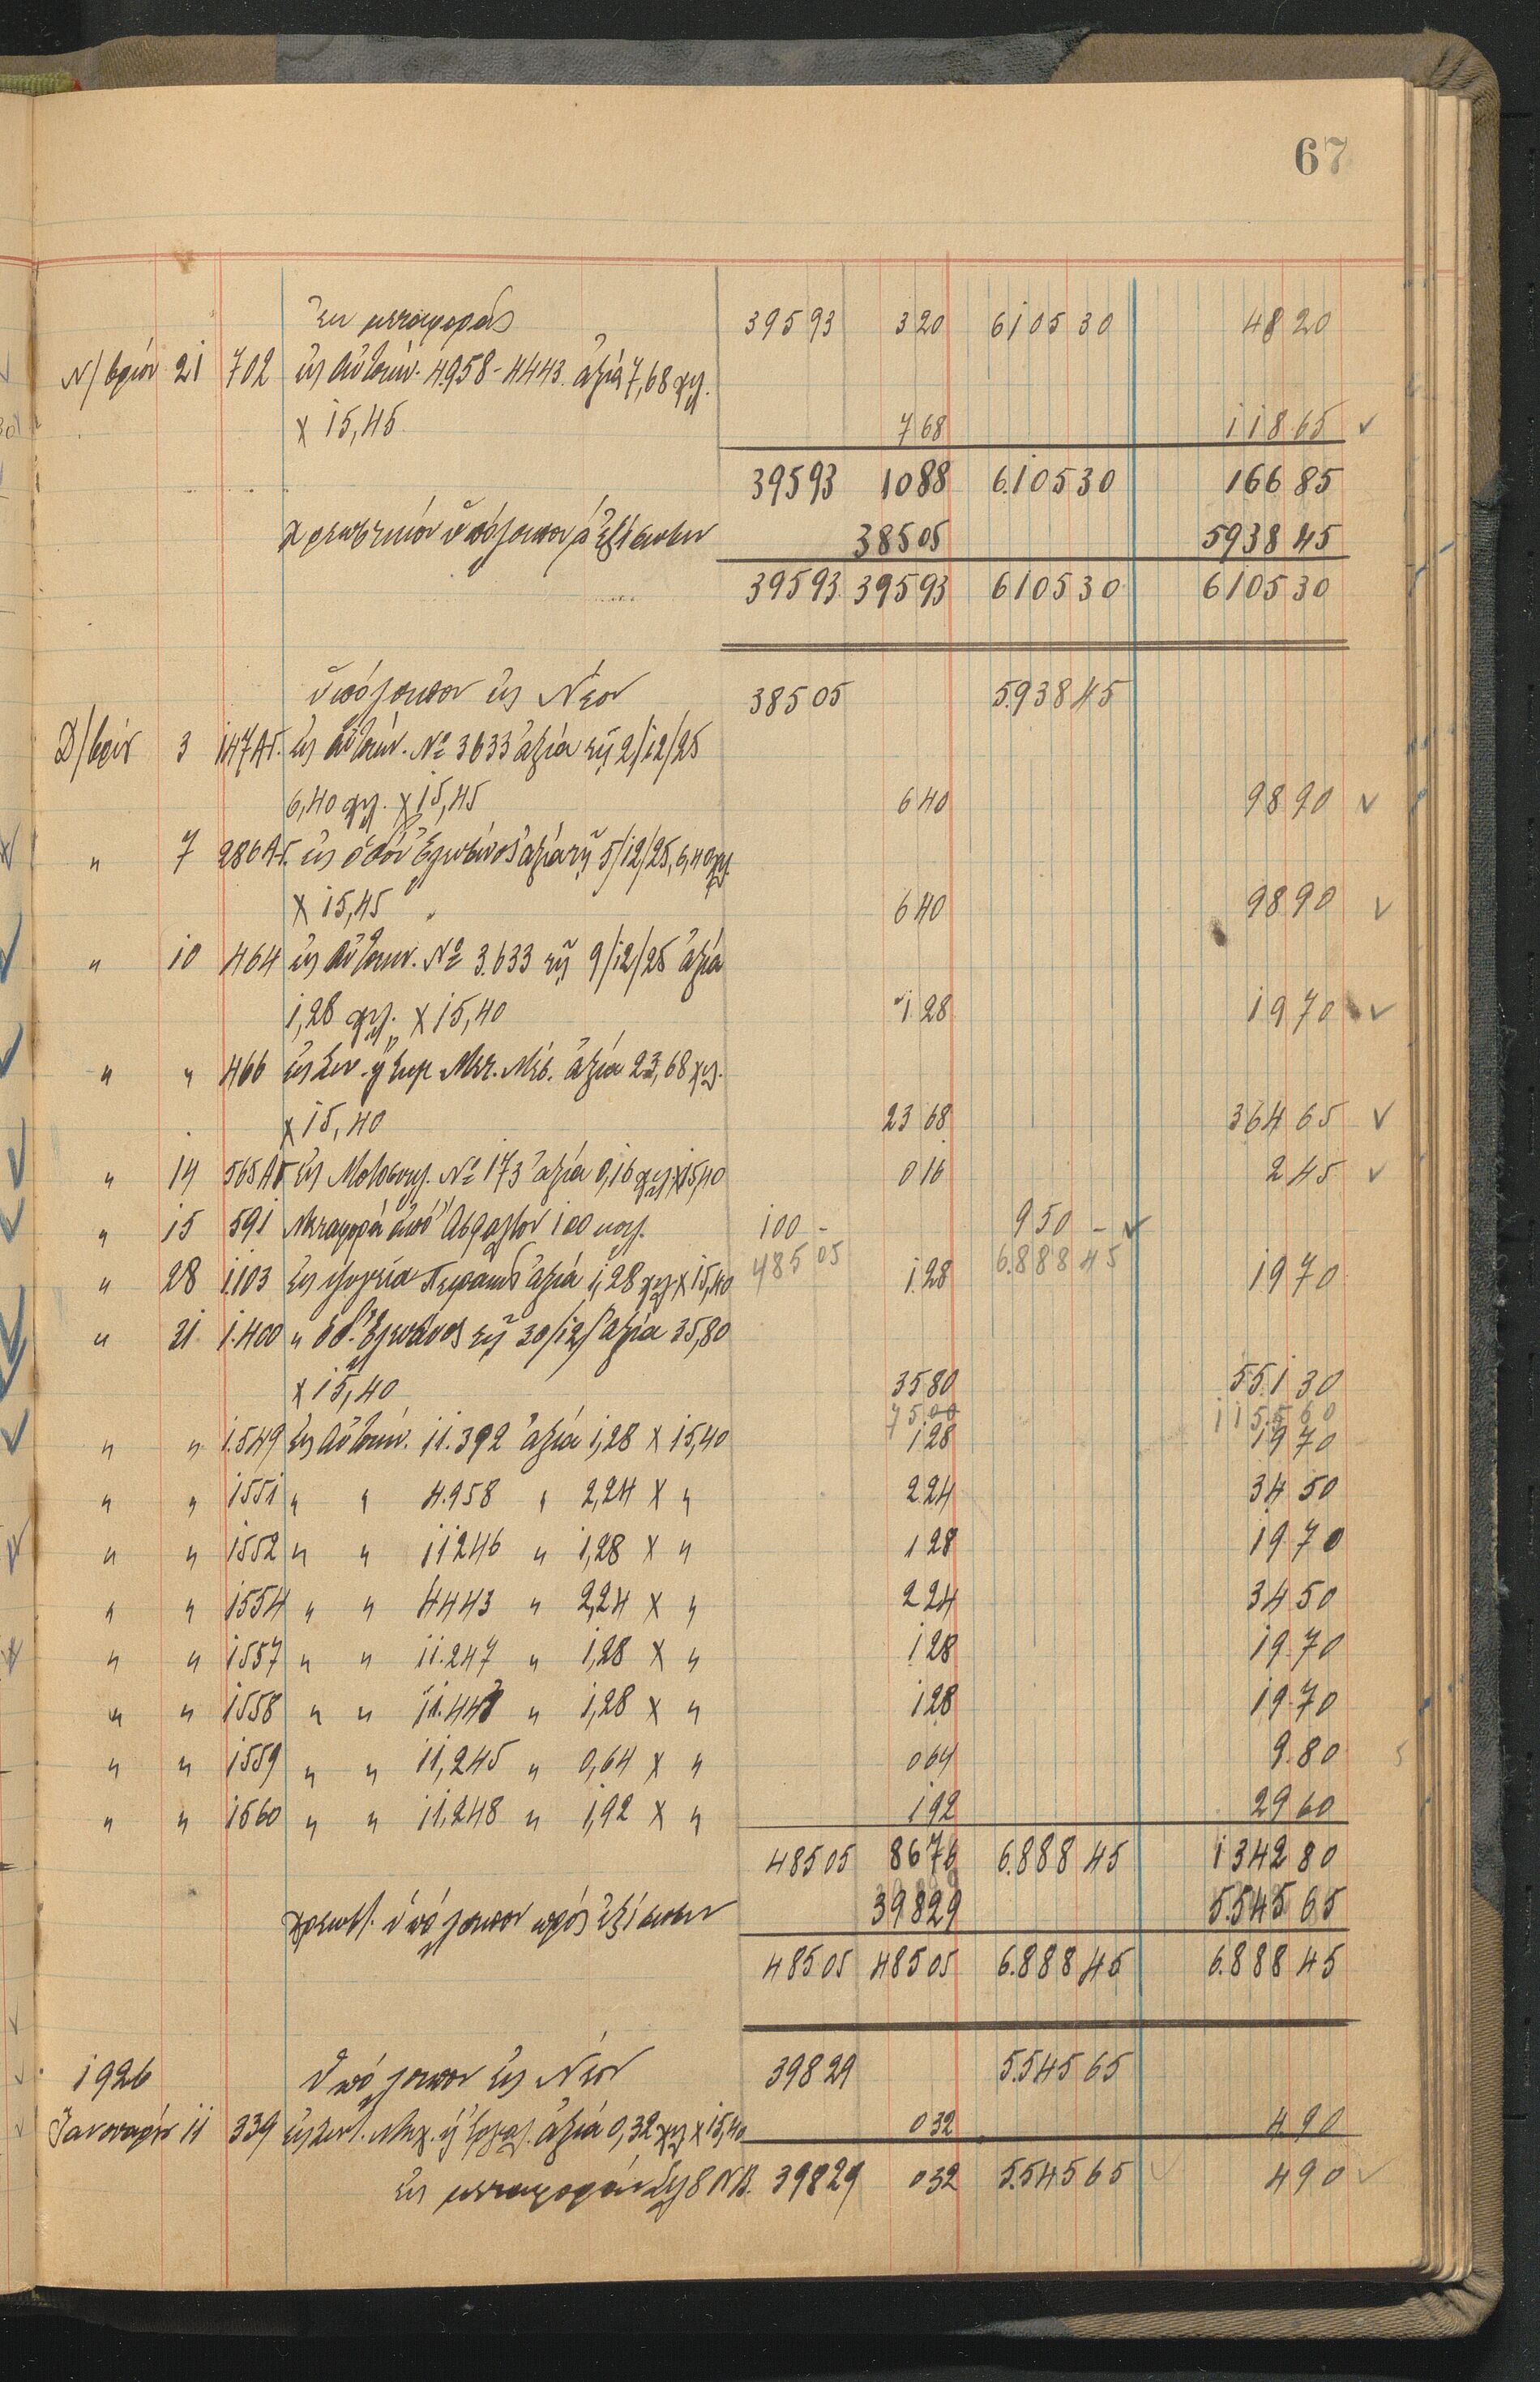 67
Ἐκ μεταφορᾶς 395 93 3 20 6105 30 48 20
Ν/βρίου 21 702 εἰς Αὐτοκιν. 4958-4443 ἀξία 7,68 χγ.
Χ 15,45 7 68 118 65
395 93 10 88 6.105 30 166 85
χρεωστικόν ὑπόλοιπον πρός ἐξίσωσιν 385 05 5938 45
395 93 395 93 6105 30 6105 30
ὑπόλοιπον εἰς Νέον 385 05 5.938 45
Δ/βρίου 3 147ΑΓ. εἰς Αὐτοκιν. Νο 3633 ἀξία τῇ 2/12/25
6,40 χγ. Χ 15,45 6 40 98 90
" 7 286ΑΓ. εἰς ὁδόν ἀξία τῇ 5/12/25, 6,40 χγ.
Χ 15,45 6 40 98 90
" 10 464 εἰς Αὐτοκιν. Νο 3.633 τῇ 9/12/25 ἀξία
1,28 χγ. Χ 15,40 1 28 19 70
" " 466 εἰς ἀξία 23,68 χγ.
Χ 15,40 23 68 364 65
" 14 565ΑΓ εἰς Μοτοσυκλ. Νο 173 ἀξία 0,16 χγ Χ 15,40 0 16 2 45
" 15 591 Μεταφορά ἀπό Ἀσφάλτου 100 100 - 950 -
485 05 6.888 45
" 28 1.103 εἰς Πειραιῶς ἀξία 1,28 χγ Χ 15,40 1 28 19 70
" 31 1.400 " ὁδ. τῇ 30/12/ ἀξία 35,80
Χ 15,40 35 80 551 30
75.00 1155 60
" " 1.549 εἰς Αὐτοκιν. 11.392 ἀξία 1,28 Χ 15,40 1 28 19 70
" " 1551 " " 4.958 " 2,24 Χ " 2 24 34 50
" " 1552 " " 11246 " 1,28 Χ " 1 28 19 70
" " 1554 " " 4443 " 2,24 Χ " 2 24 34 50
" " 1557 " " 11.247 " 1,28 Χ " 1 28 19 70
" " 1558 " " 11.443 " 1,28 Χ " 1 28 19 70
" " 1559 " " 11,245 " 0,64 Χ " 0 64 9 80
" " 1560 " " 11,248 " 1,92 Χ " 1 92 29 60
485 05 86 76 6.888 45 1342 80
χρεωστ. ὑπόλοιπον πρός ἐξίσωσιν 398 29 5.545 65
485 05 485 05 6.888 45 6.888 45
1926 ὑπόλοιπον εἰς Νέον 398 29 5.545 65
Ἰανουαρίου 11 339 ἀξία 0,32 χγ Χ 15,40 0 32 4 90
εἰς μεταφοράν 398 29 0 32 5.545 65 4 90